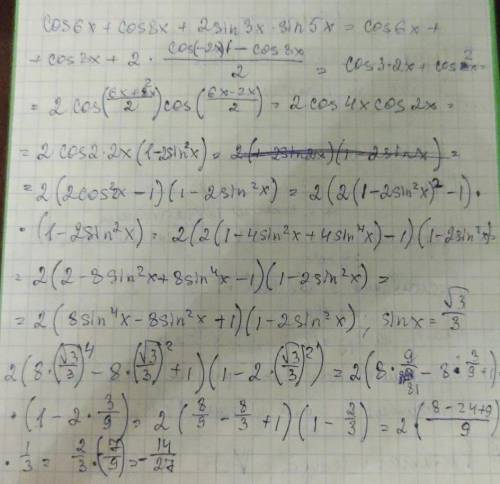 cos6x + cos8x + 2sin3x·sin5x = cos6x +
+ cos8x + 2 · (cos(-2x) - cos8x)/2 = cos3·2x + cos2x
= 2cos((6x+2x)/2)cos((6x-2x)/2) = 2cos4x cos2x =
= 2cos2·2x(1-2sin²x) = =
= 2(2cos²2x - 1)(1-2sin²x) = 2(2(1-2sin²x)² - 1)·
· (1-2sin²x) = 2(2(1-4sin²x+4sin⁴x)-1)(1-2sin²x)=
= 2(2-8sin²x+8sin⁴x-1)(1-2sin²x) =
= 2(8sin⁴x-8sin²x+1)(1-2sin²x); sinx = √3/3
2(8·(√3/3)⁴ - 8·(√3/3)² + 1)(1-2·(√3/3)²) = 2(8·9/81 - 8·3/9+1)·
· (1-2·3/9) = 2(8/9 - 8/3 + 1)(1 - 2/3) = 2·((8-24+9)/9)
· 1/3 = 2/3·(-7/9) = -14/27